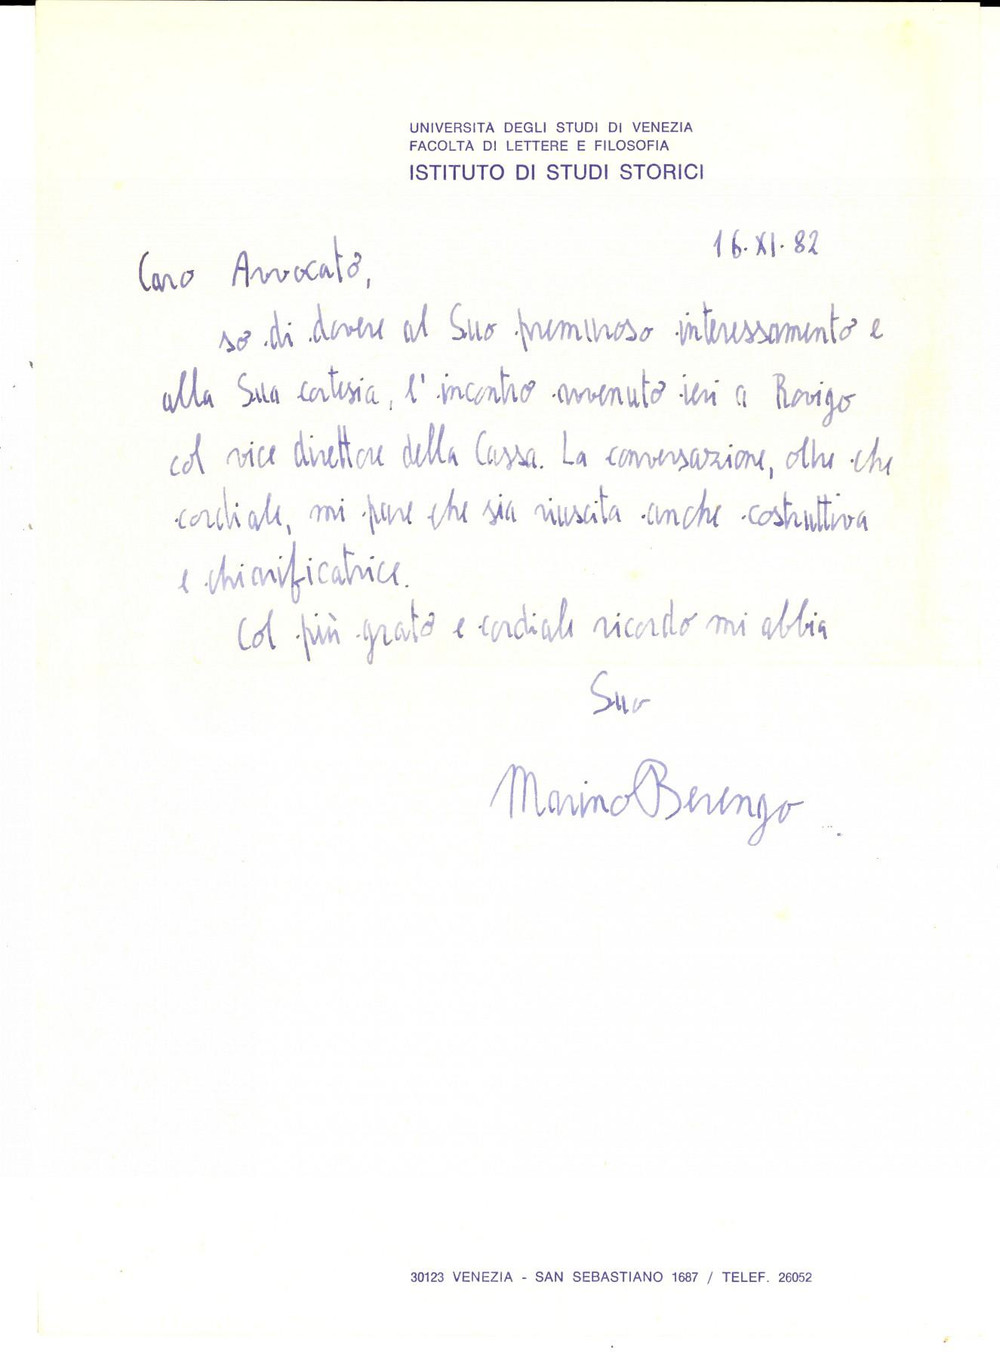 UNIVERSITA DEGLI STUDI DI VENEZIA
FACOLTA DI LETTERE E FILOSOFIA
ISTITUTO DI STUDI STORICI
16.XI.82
Caro Avvocato,
so di dovere al Suo premuroso interessamento e
alla Sua cortesia, l'incontro avvenuto ieri a Rovigo
col vice direttore della Cassa. La conversazione, oltre che
cordiale, mi pare che sia riuscita anche costruttiva
e chiarificatrice.
Col più grato e cordiale ricordo mi abbia
Suo
Marino Berengo
30123 VENEZIA - SAN SEBASTIANO 1687 / TELEF. 26052